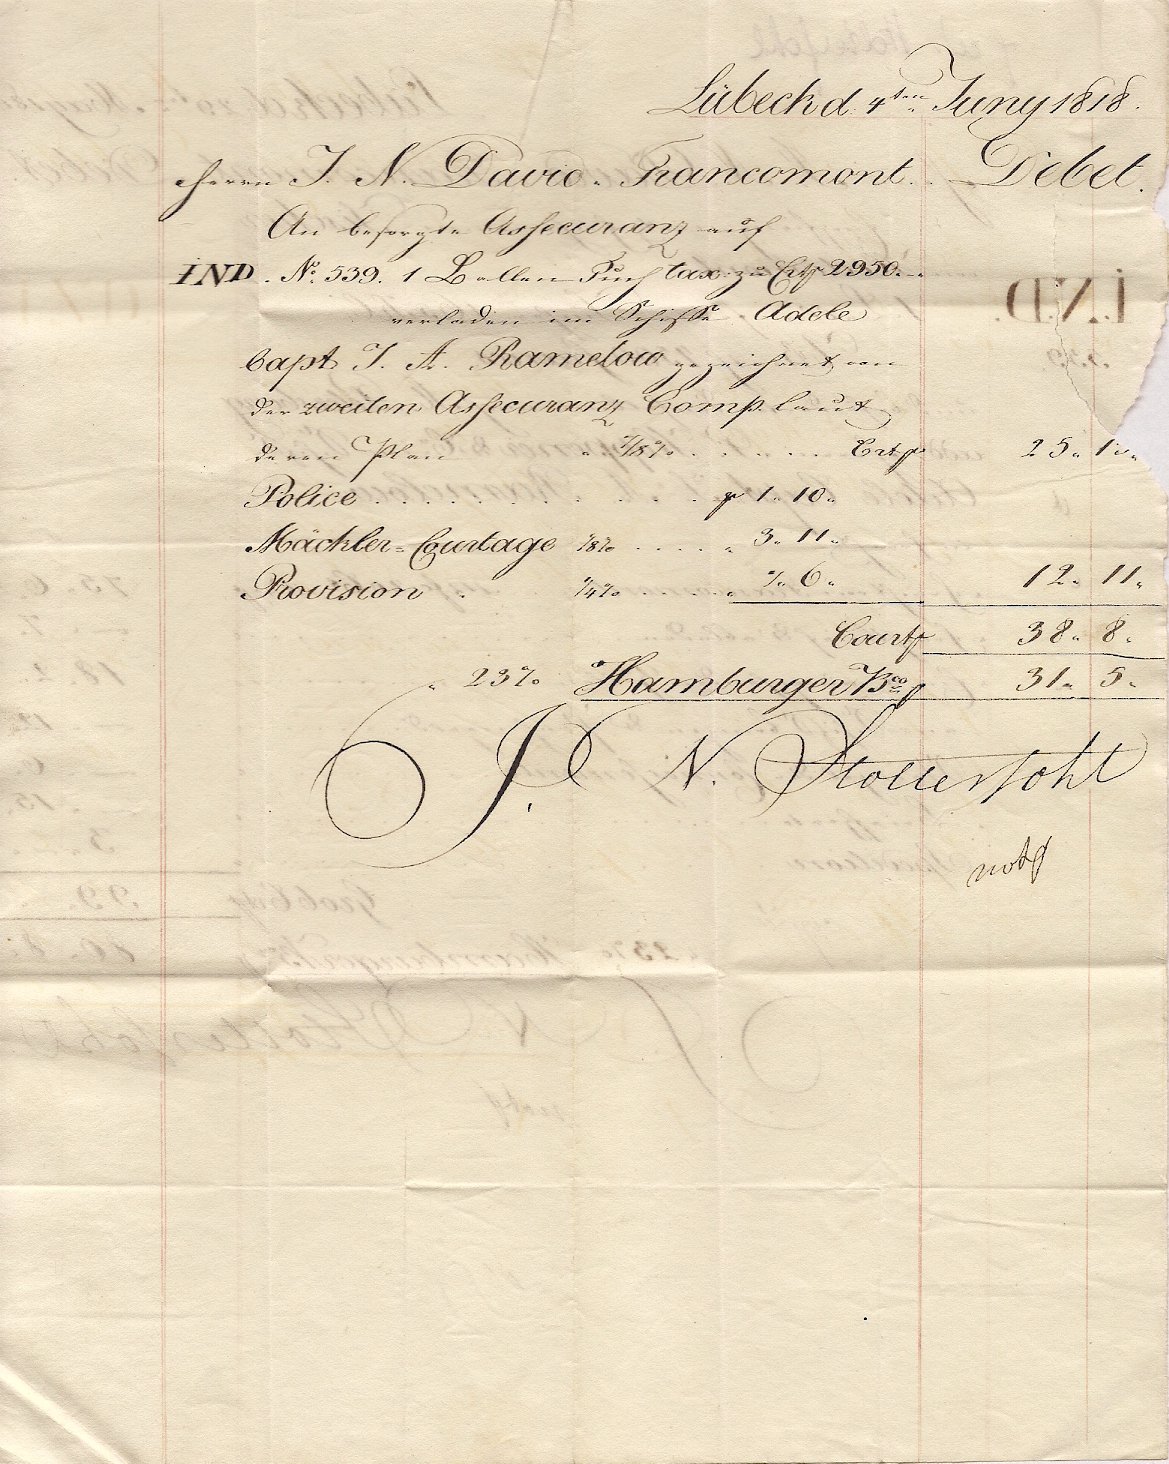 Lübeck d. 4ten Juny 1818.
Herrn J. N. David. Francomont. Debet.
An besorgte Assecuranz auf
IND. No. 539. 1 Ballen Tuch tax: zu Crt 2950.
verladen im Schiffe Adele
Capt J. A. Ramelow gezeichnet von
der zweiten Assecuranz Comp. laut
deren Plan 7/8% Crt 25. 13.
Police 1. 10.
Mäckler=Courtage 1/8% 3. 11.
Provision 1/4% 7. 6. 12. 11.
Court 38. 8.
23% Hamburger Bco 31. 5.
J. N. Stolterfoht